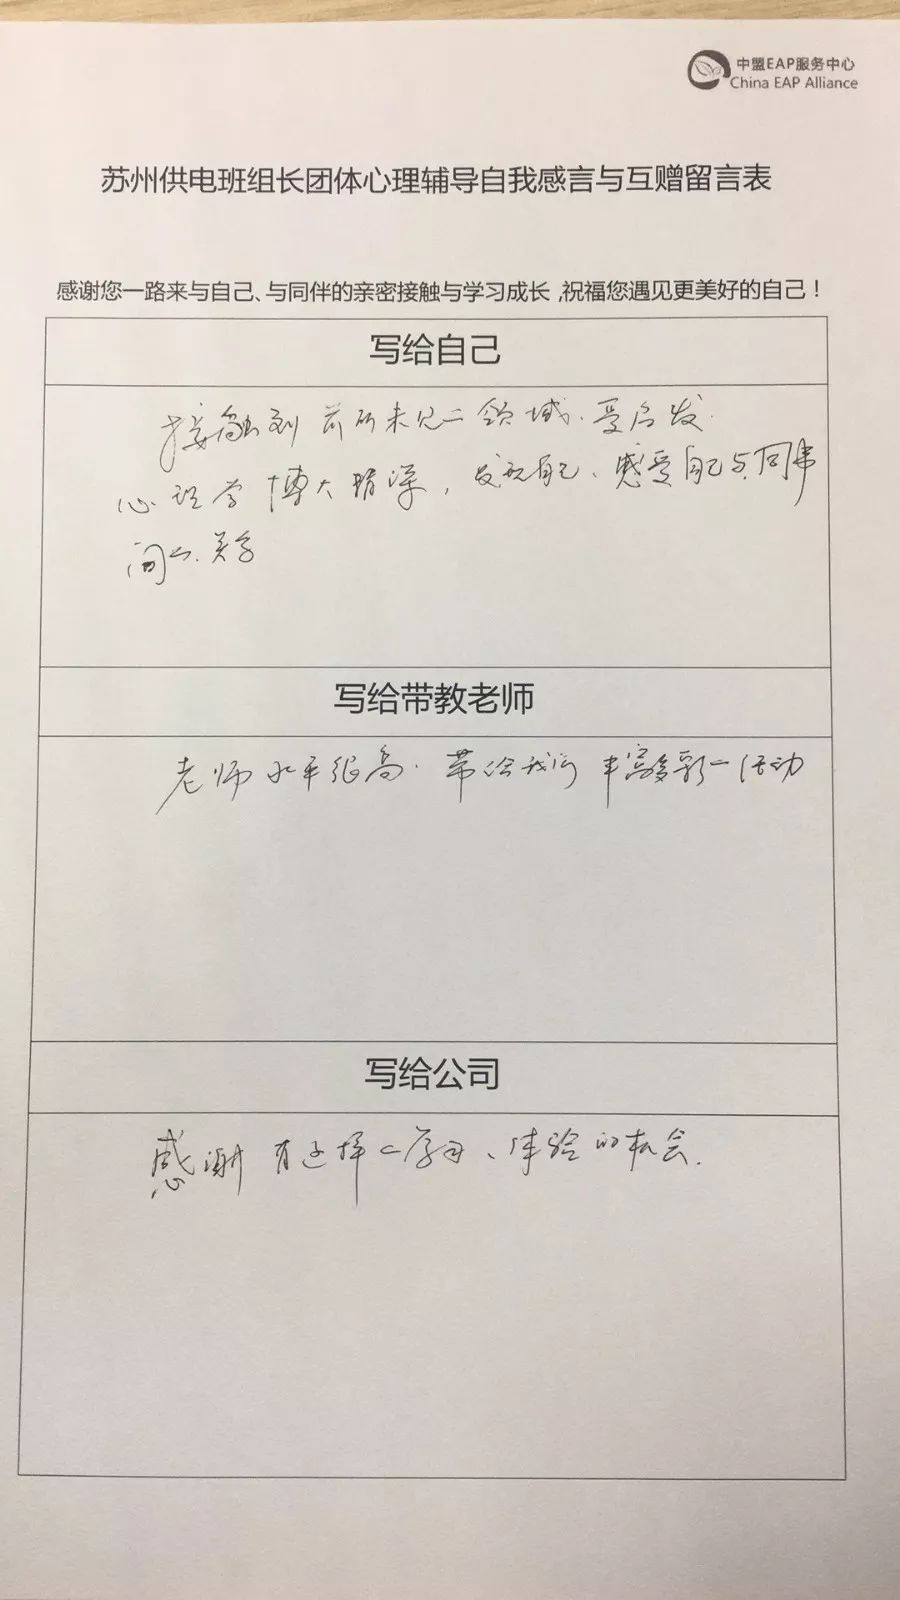 中盟EAP服务中心
China EAP Alliance
苏州供电班组长团体心理辅导自我感言与互赠留言表
感谢您一路来与自己、与同伴的亲密接触与学习成长,祝福您遇见更美好的自己！
写给自己
接触到前所未见的领域.受启发.
心理学博大精深，发现自己、感受自己与同事
间的关系
写给带教老师
老师水平很高.带给我们丰富多彩的活动
写给公司
感谢有这样的学习、体验的机会.